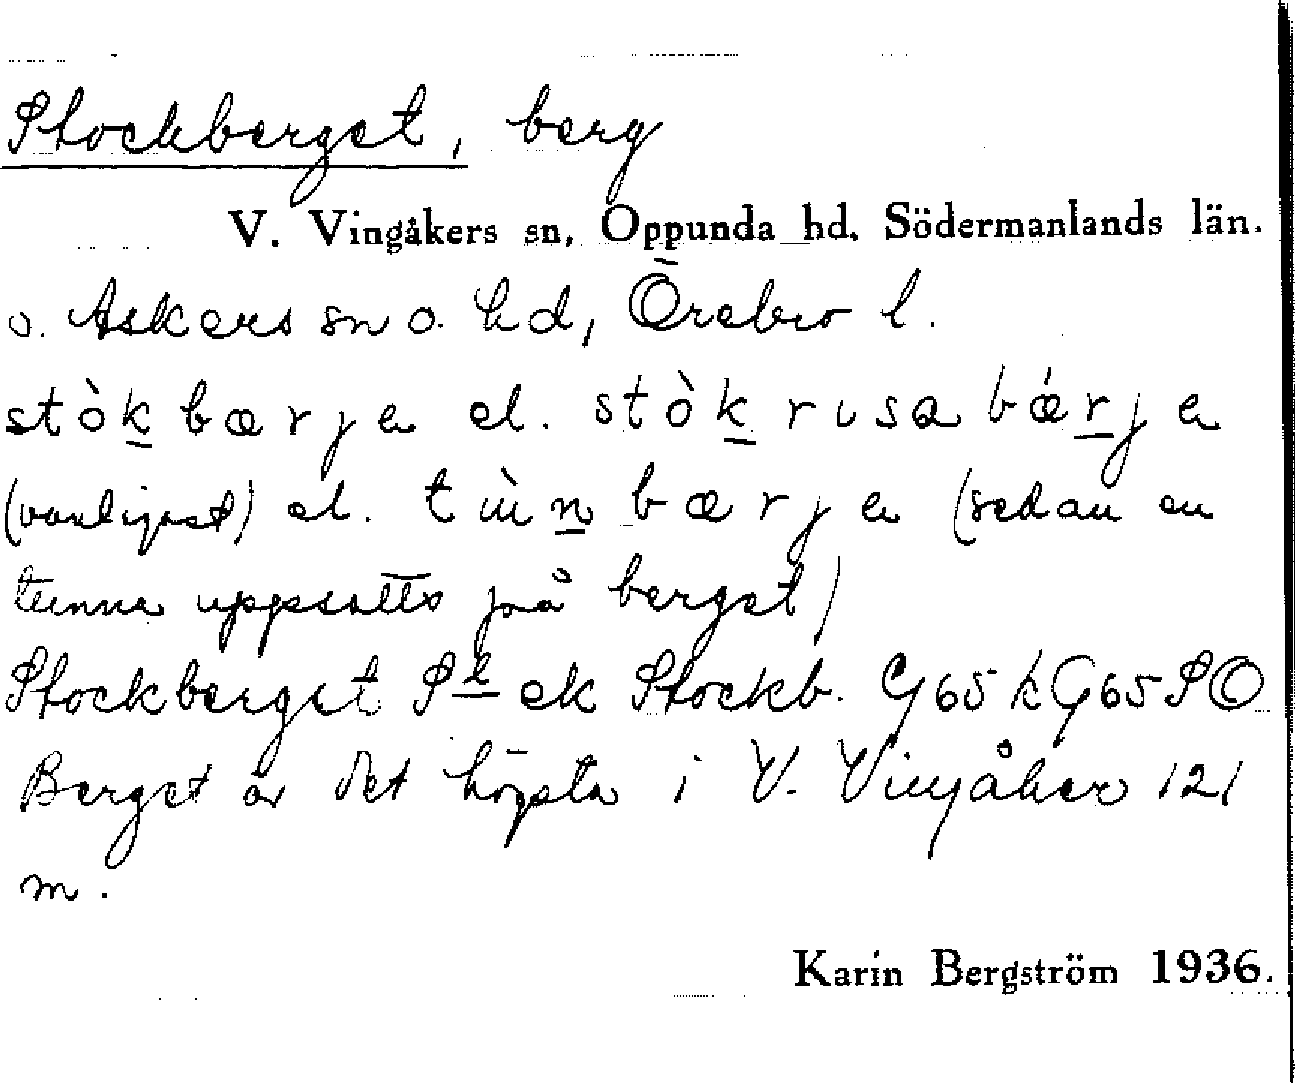 Stockberget, berg
V. Vingåkers sn, Oppunda hd. Södermanlands län.
o. Askers sn o. hd, Örebro l.
stòk bærje el. stòkrusa bǽrje
(vanligast) el. tùn bærje (sedan en
tunna uppsatts på berget)
Stockberget Sk ek Stockb. G65 k G65 SO
Berget är det högsta i V. Vingåker 121
m.
Karin Bergström 1936.